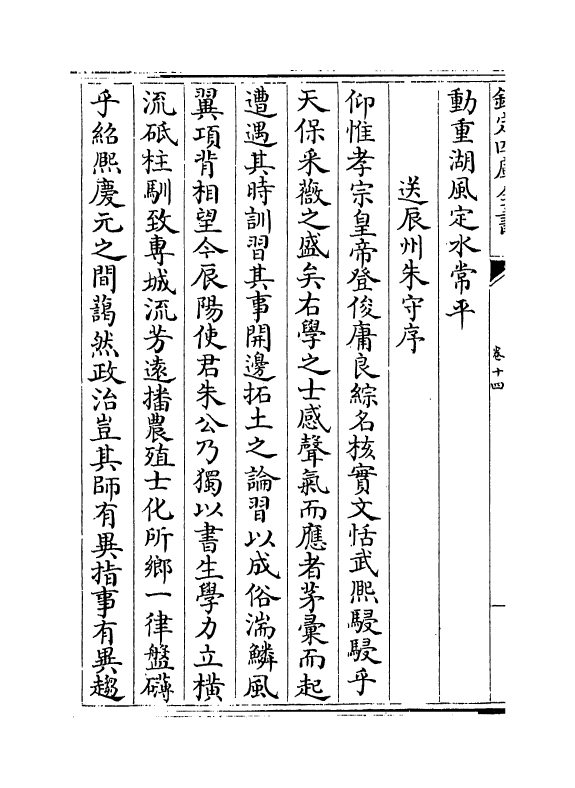 欽定四庫全書
卷十四
動重湖風定水常平
送辰州朱守序
仰惟孝宗皇帝登俊庸良綜名核實文恬武熙駸駸乎
天保采薇之盛矣右學之士感聲氣而應者茅彚而起
遭遇其時訓習其事開邊拓土之論習以成俗湍鱗風
翼項背相望今辰陽使君朱公乃獨以書生學力立橫
流砥柱馴致專城流芳遠播農殖士化所鄉一律盤礴
乎紹熙慶元之間藹然政治豈其師有異指事有異趨